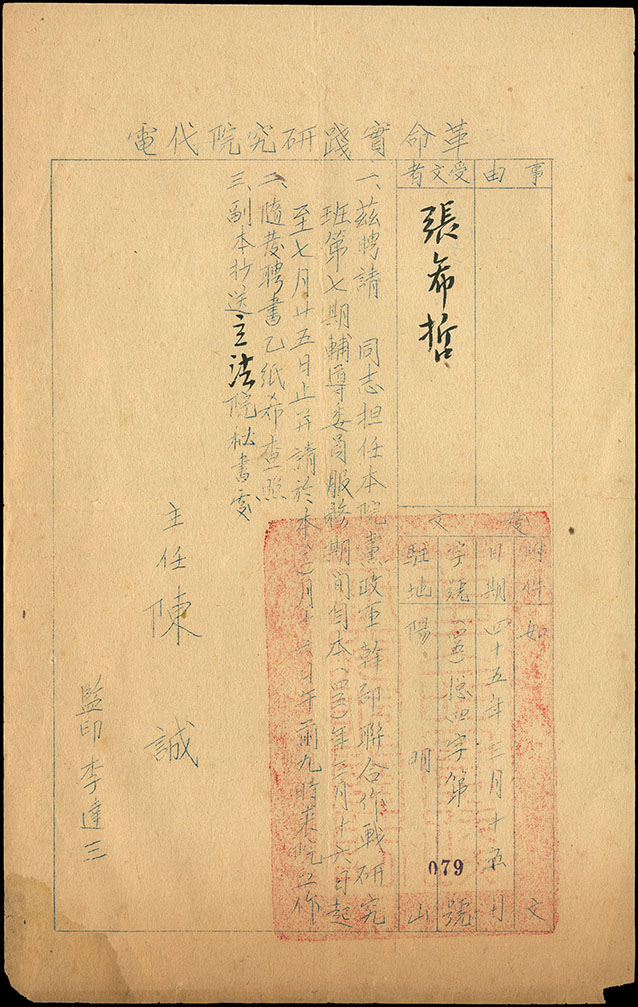 革命實踐研究院代電
事由
受文者
張希哲
發文
附件 如文
日期 四十五年三月十五日
字號 (四五)總四字第079號
駐地 陽明山
一、茲聘請 同志担任本院黨政軍幹部聯合作戰研究
班第七期輔導委員服務期間自本(四五)年三月十六日起
至七月廿五日止并請於本(三)月十六日午前九時來院工作
二、隨發聘書乙紙希查照
三、副本抄送立法院秘書處
主任 陳誠
監印 李達三